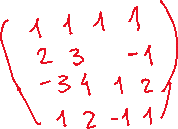 1 1 1 1
2 3 -1
-3 4 1 2
1 2 -1 1